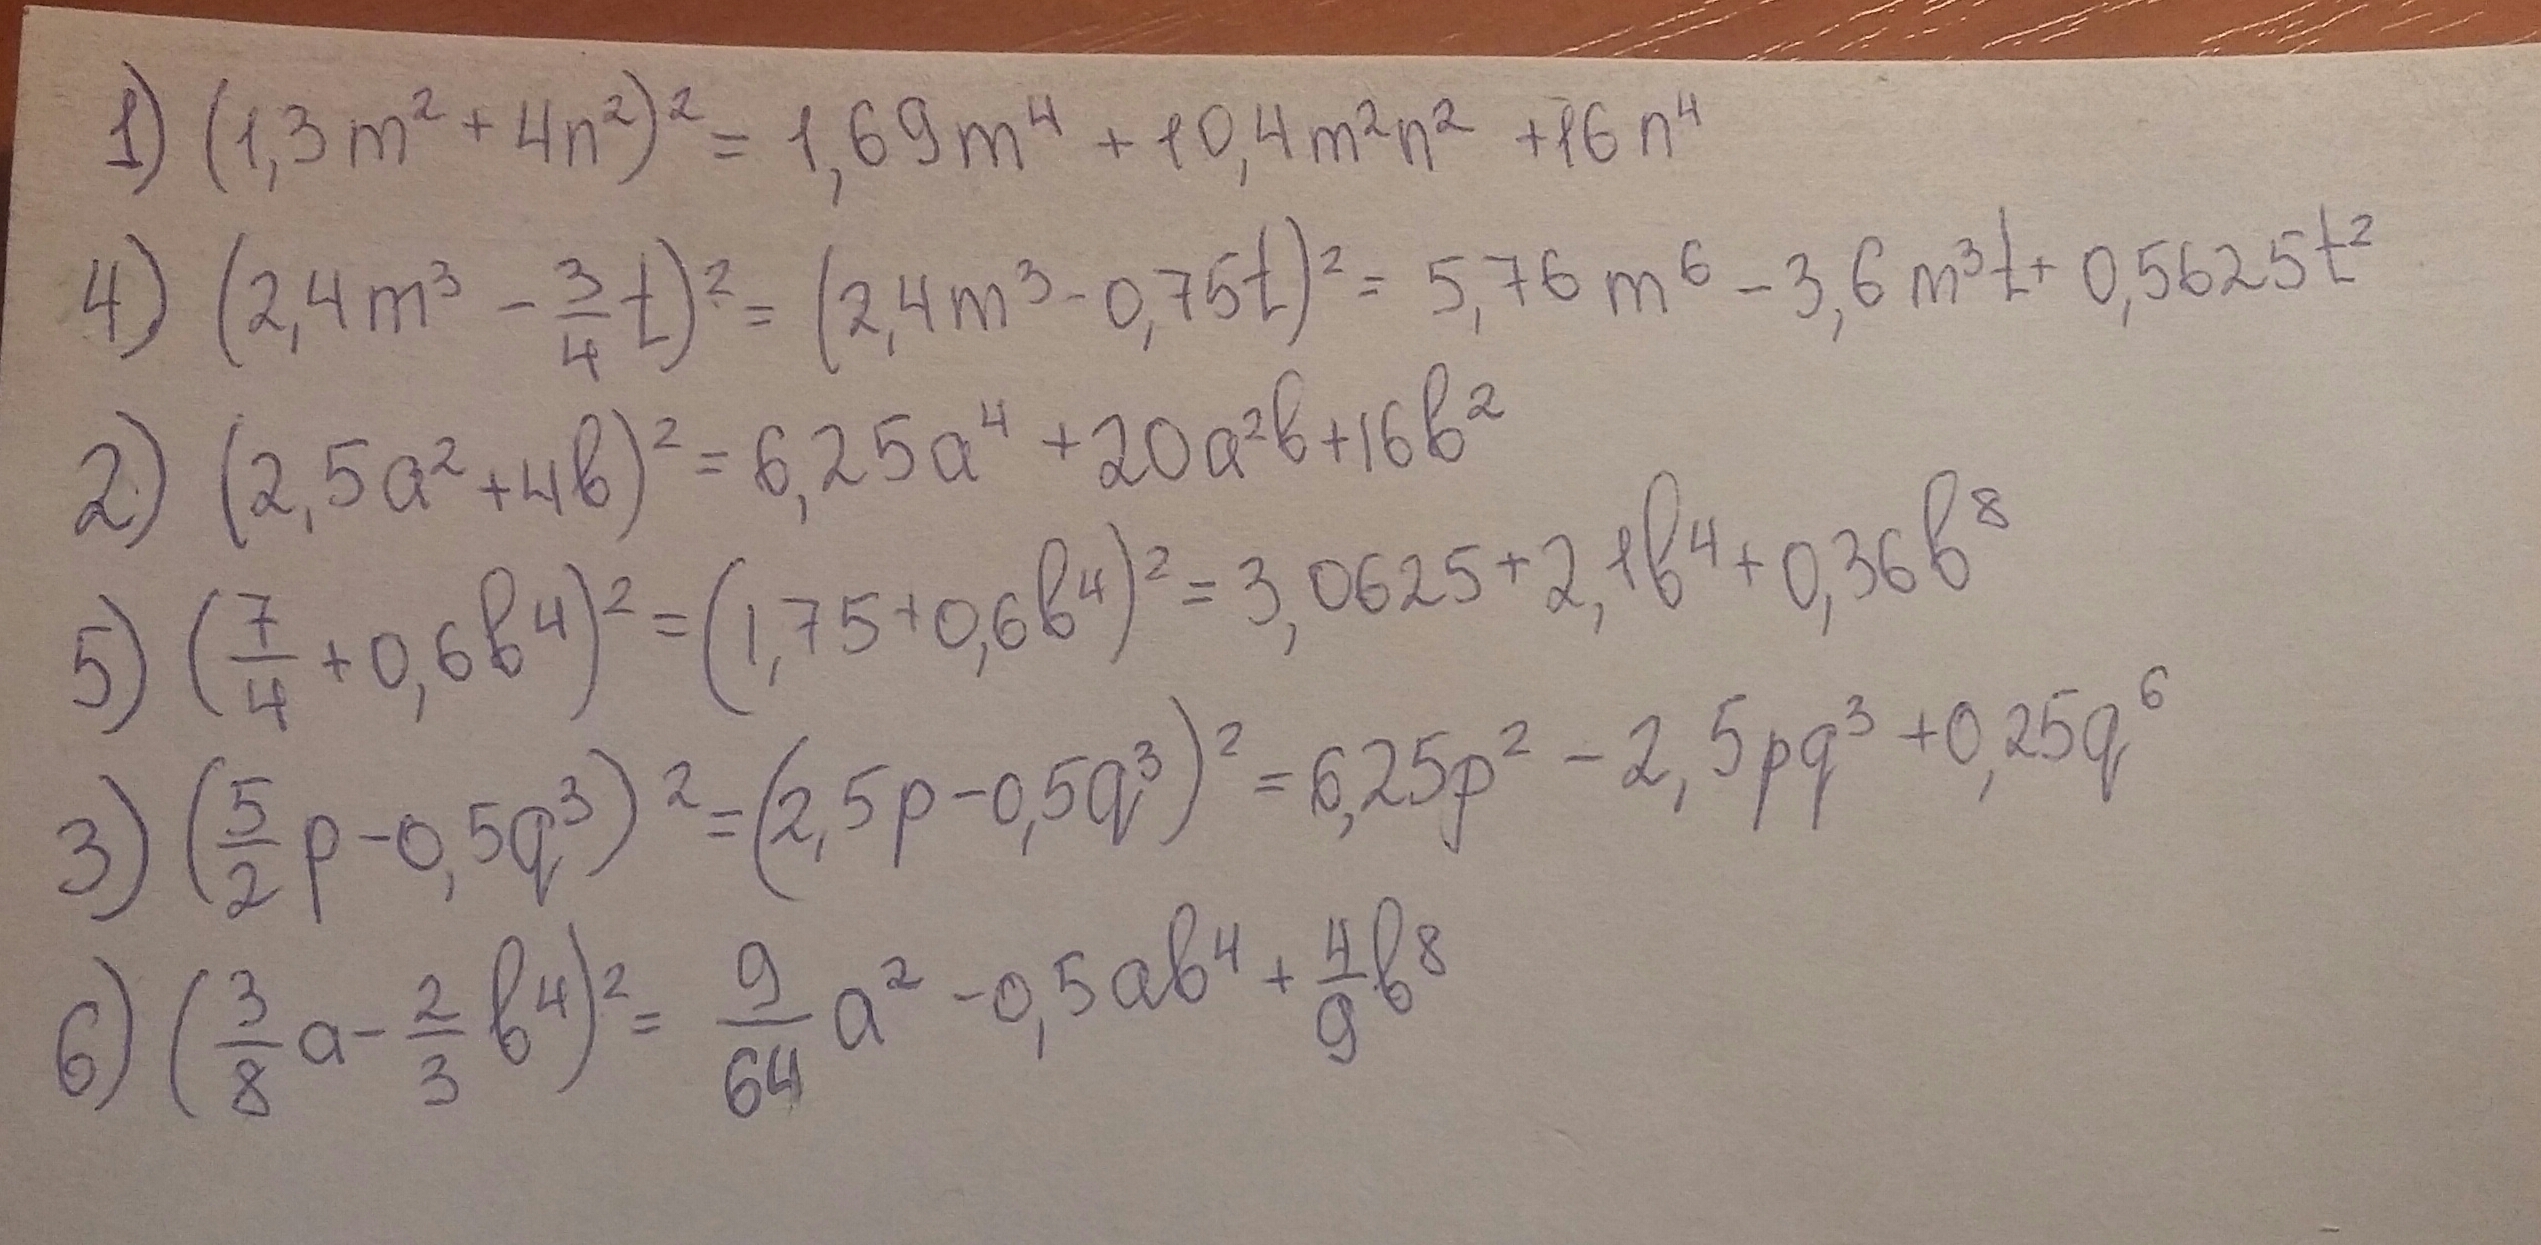 1) (1,3m² + 4n²)² = 1,69m⁴ + 10,4m²n² + 16n⁴
4) (2,4m³ - 3/4 t)² = (2,4m³ - 0,75t)² = 5,76m⁶ - 3,6m³t + 0,5625t²
2) (2,5a² + 4b)² = 6,25a⁴ + 20a²b + 16b²
5) (7/4 + 0,6b⁴)² = (1,75 + 0,6b⁴)² = 3,0625 + 2,1b⁴ + 0,36b⁸
3) (5/2 p - 0,5q³)² = (2,5p - 0,5q³)² = 6,25p² - 2,5pq³ + 0,25q⁶
6) (3/8 a - 2/3 b⁴)² = 9/64 a² - 0,5ab⁴ + 4/9 b⁸